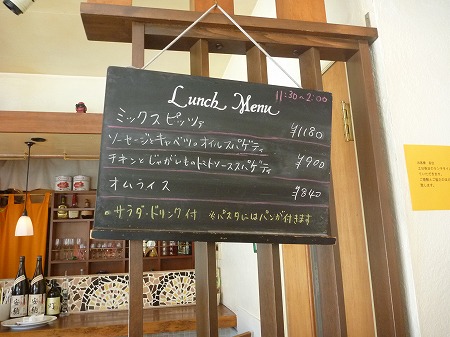 Lunch Menu 11:30~2:00
ミックスピッツァ ¥1180
ソーセージとキャベツのオイルスパゲティ
チキンとじゃがいものトマトソーススパゲティ ¥900
オムライス ¥840
サラダ・ドリンク付 ※パスタにはパンが付きます